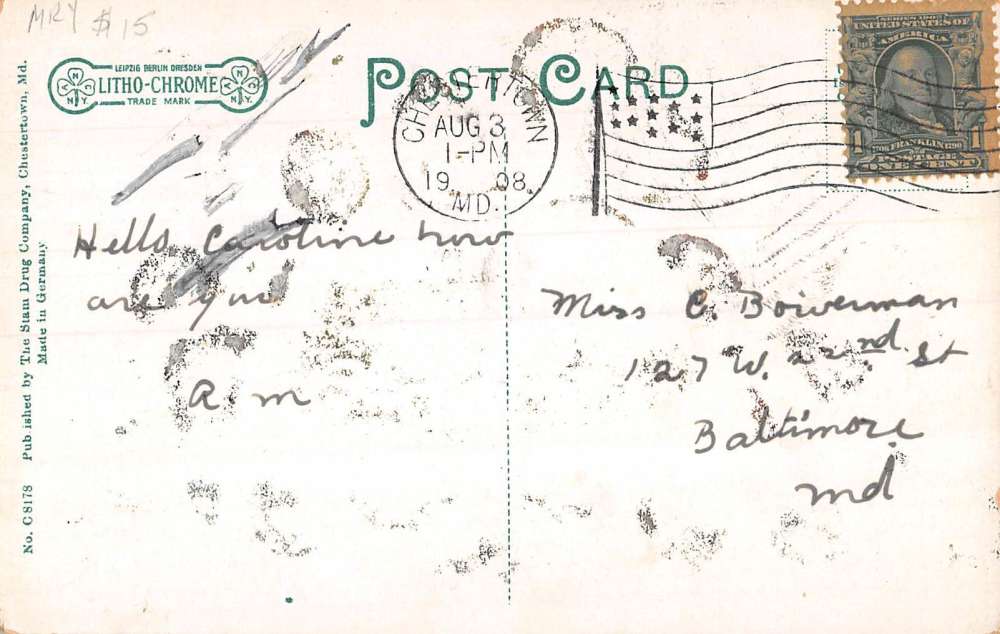 MRY $15
LEIPZIG BERLIN DRESDEN
LITHO-CHROME
TRADE MARK
N.Y.
N.Y.
POST CARD
CHESTERTOWN
AUG 3
1-PM
19 08.
MD.
SERIES 1902
UNITED STATES OF
AMERICA
1 1
FRANKLIN
POSTAGE
ONE CENT
Hello Caroline how
are you
A. m
Miss C. Bowerman
127 W. 22nd. St
Baltimore
md
No. C8178 Published by The Stam Drug Company, Chestertown, Md.
Made in Germany